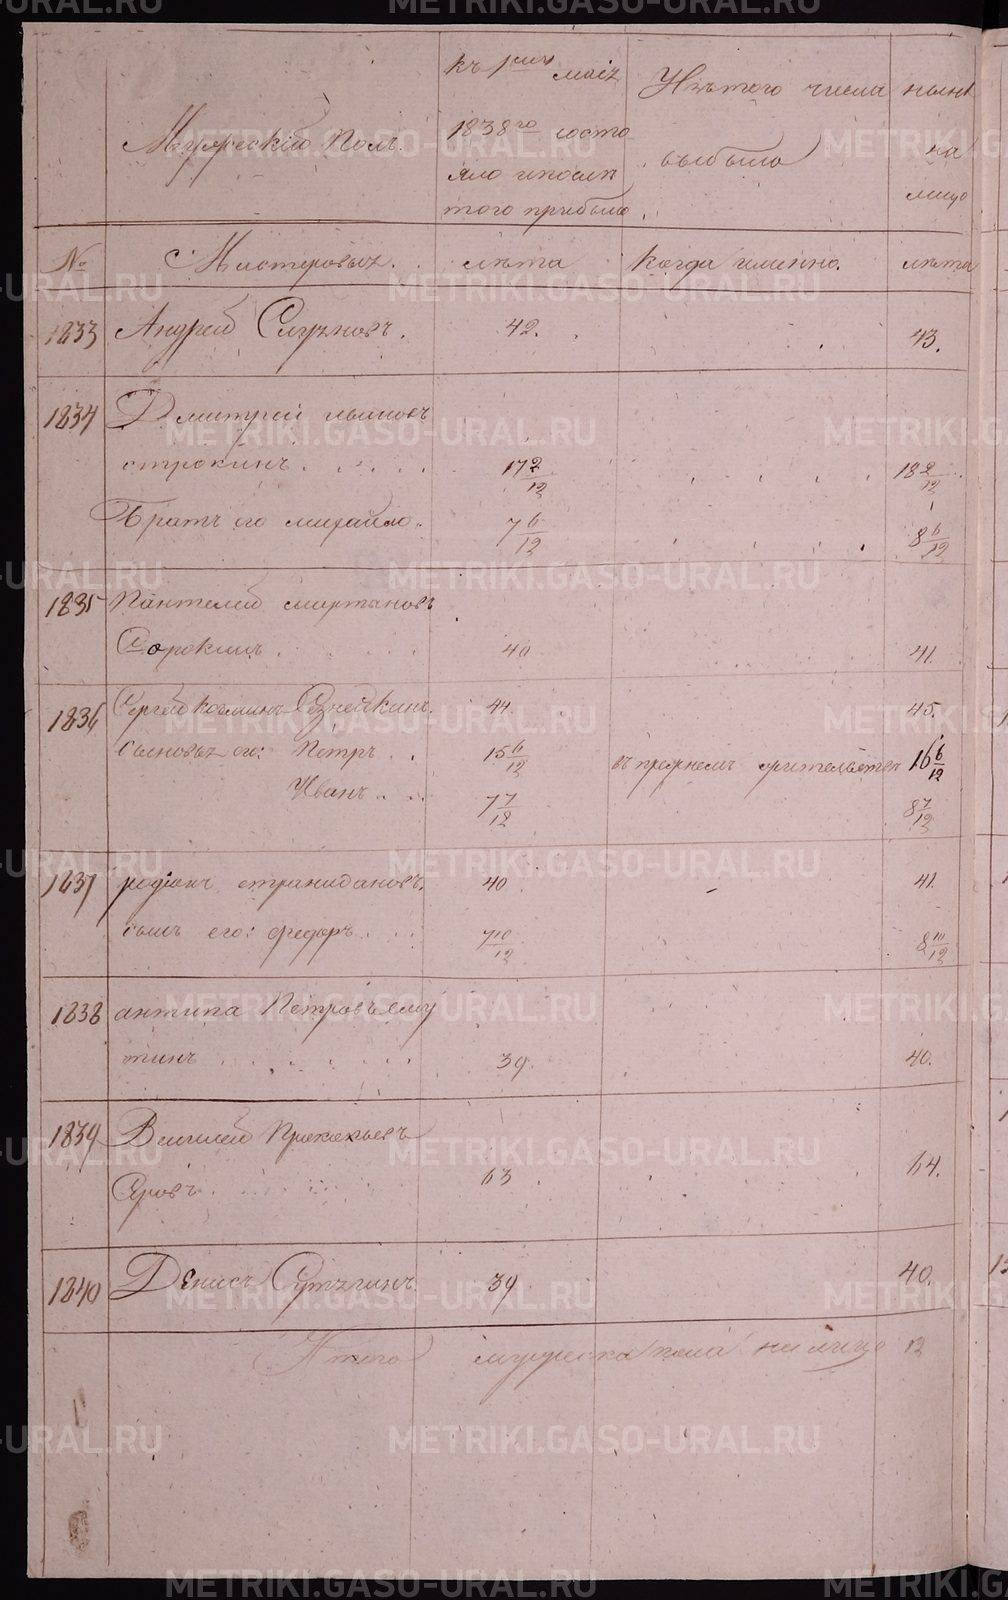 Мужескій Полъ.
къ 1му маія
1838го состо
яло и после
того прибыло
Изъ того числа
выбыло
ныне
на
лицо
№
Мастеровых.
лѣта
Когда именно.
лѣта
1833 Андрей 42. 43.
1834 Дмитрей ивановъ
строкинъ 17 2/12 18 2/12
Братъ его михайло. 7 6/12 8 6/12
1835 Пантелей
Сорокинъ 40 41.
1836 Сергей 44. 45.
сыновья его: Петръ 15 6/12 въ прежнемъ 16 6/12
Иванъ 7 7/12 8 7/12
1837 родіонъ 40 41.
сынъ его: федоръ 7 10/12 8 10/12
1838 антипа Петровъ ему
тинъ 39. 40.
1839 Василей Прокопьевъ
Серовъ 63 64.
1840 Денисъ 39 40.
Итого мужеска пола на лицо 12
METRIKI.GASO-URAL.RU